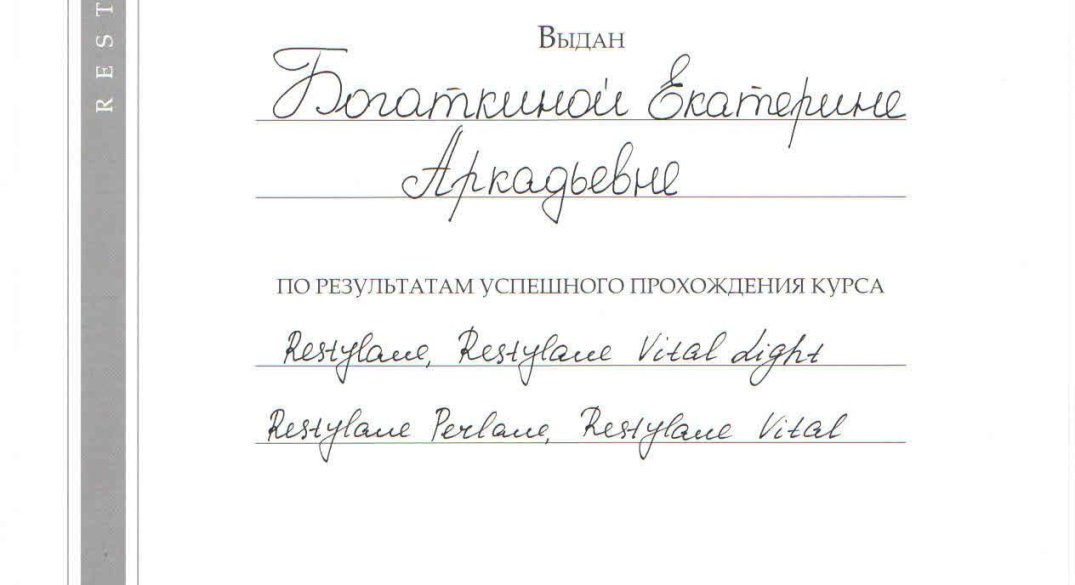 REST
Выдан
Богаткиной Екатерине
Аркадьевне
ПО РЕЗУЛЬТАТАМ УСПЕШНОГО ПРОХОЖДЕНИЯ КУРСА
Restylane, Restylane Vital Light
Restylane Perlane, Restylane Vital